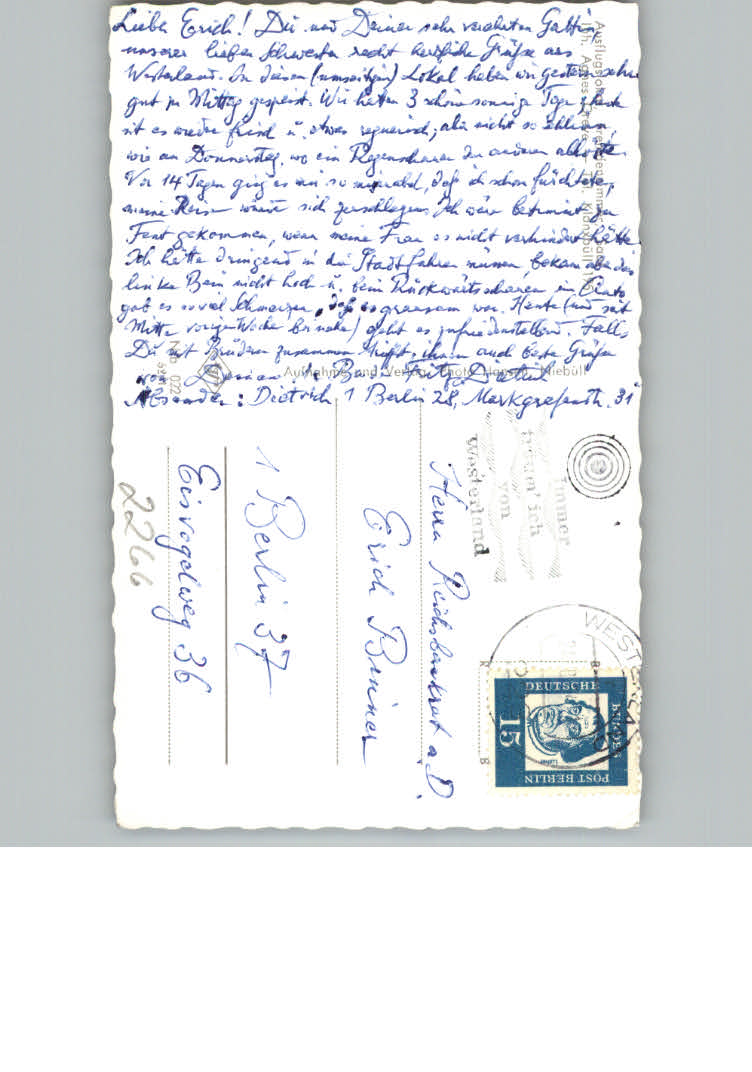 Lieber Erich! Dir und Deiner sehr verehrten Gattin,
unserer lieben Schwester recht herzliche Grüße aus
Westerland. In diesem (umseitigen) Lokal haben wir gestern sehr
gut zu Mittag gespeist. Wir hatten 3 schöne sonnige Tage, heute
ist es wieder frisch u. etwas regnerisch, aber nicht so schlimm,
wie am Donnerstag, wo ein Regenschauer den anderen ablöste.
Vor 14 Tagen ging es mir so miserabel, daß ich schon fürchtete,
meine Reise würde sich zerschlagen. Ich wäre bestimmt zum
Fest gekommen, wenn meine Frau es nicht verhindert hätte.
Ich hätte dringend in die Stadt fahren müssen, bekam aber das
linke Bein nicht hoch u. beim Rückwärts
gab es soviel Schmerzen, daß es grausam war. Heute (und seit
Mitte voriger Woche beinahe) geht es zufriedenstellend. Falls
Du mit Brüdern zusammen triffst, ihnen auch beste Grüße
von Deinem Br. Fritz Dietrich
Absender: Dietrich, 1 Berlin 28, Markgrafenstr. 31
Aufnahme und Verlag: Photo Hansen, Niebüll
Nib 022
Immer
freu' ich
von
Westerland
WESTERLAND
DEUTSCHE
BUNDES
POST BERLIN
15
LUTHER
Herrn Reichsbankrat a.D.
Erich Binner
1 Berlin 37
Eisvogelweg 36
2266